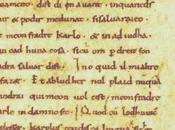 dist di en auant . inquantds
& podir medunat . sisaluaraieo
meonfradre karlo . & in adiudha
in cad huna cosa . sicū om p dreit son
dra saluar dist . Ino quid il mialtre
fazet . Et abludher nul plaid nūquā
ndrai qui meon uol cist meonfradre
arle in damno sit . Quod cū lodhuuic